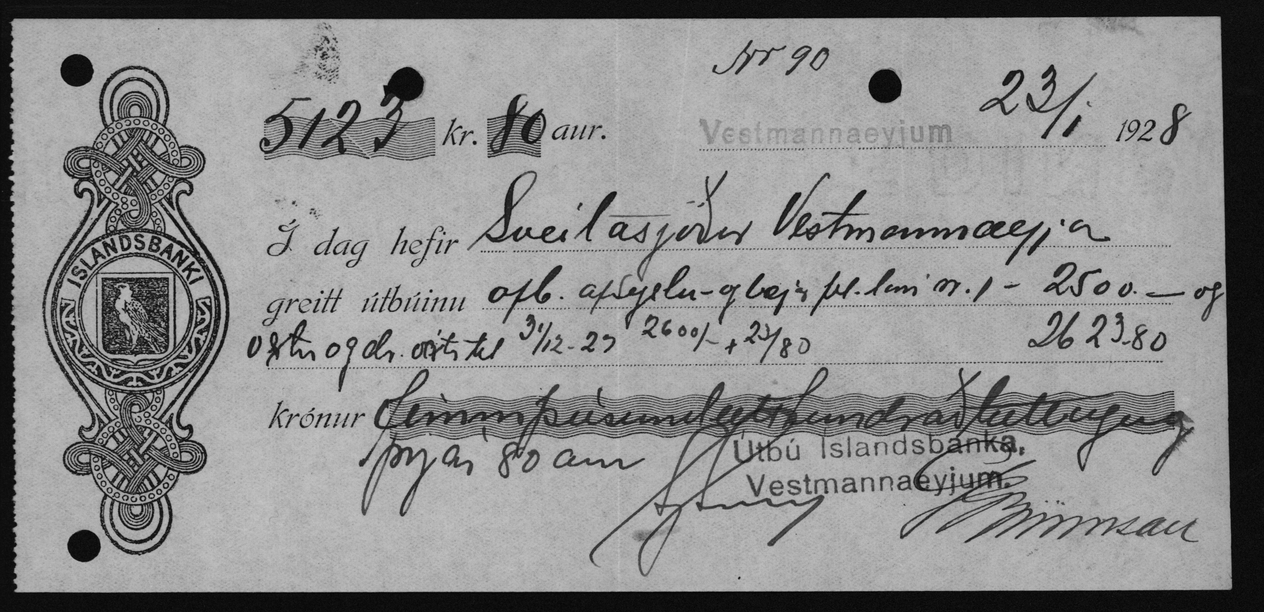 Nr 90
5123 kr. 80 aur.
Vestmannaeyjum 23/1 1928
ÍSLANDSBANKI
Í dag hefir Sveitasjóður Vestmannaeyja
greitt útbúinu afb. af nr. 1 - 2500.- og
vexti og dr. vexti til 31/12-27 2600/- + 23/80 2623-80
krónur fimmþúsundeitthundraðtuttuguog
þrjár 80 aur
Útbú Íslandsbanka,
Vestmannaeyjum.